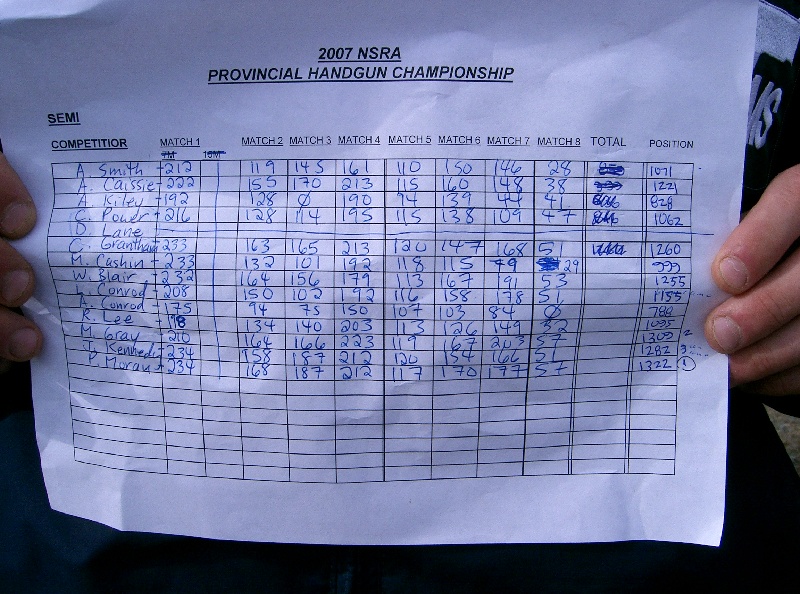 2007 NSRA
PROVINCIAL HANDGUN CHAMPIONSHIP
SEMI
COMPETITIOR MATCH 1 MATCH 2 MATCH 3 MATCH 4 MATCH 5 MATCH 6 MATCH 7 MATCH 8 TOTAL POSITION
A. Smith 212 119 145 161 110 150 146 28 1071
A. Caissie 222 155 170 213 115 160 148 38 1221
A. Kiley 192 128 Ø 190 94 139 44 41 828
C. Power 216 128 114 195 115 138 109 47 1062
D. Lane
C. Grantham 233 163 165 213 120 147 168 51 1260
M. Cashin 233 132 101 192 118 115 79 29 999
W. Blair 232 164 156 179 113 167 191 53 1255
L. Conrod 208 150 102 192 116 158 178 51 1155
A. Conrod 175 94 75 150 107 103 84 Ø 788
R. Lee 134 140 203 113 126 149 32 1095
M. Gray 210 164 166 223 119 167 203 57 1309 2
J. Kennedy 234 158 187 212 120 154 166 51 1282 3
Moran 234 168 187 212 117 170 177 57 1322 1